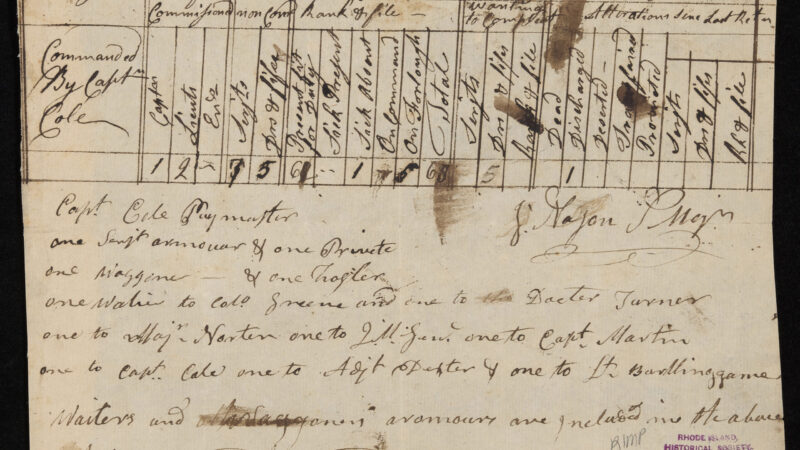 Commissiond non Comd Rank & file Wanting to Compleat Alterations Sinc Last Retur
Commanded By Captn Cole
Captn Lieuts Ens Serjts Drs & fifes Present fit for Duty Sick Present Sick Absent On Command On Forlough Total Serjts Drs & fifes Rank & file Dead Discharged Decerted Transfferred Promoted Serjts Drs & fifes R & file
1 2 - 7 5 61 - 1 5 68 5 1
Capt. Cole Paymaster
J. Nason S Majr
one Serjt armouar & one Private
one Waggoner — & one
one Waiter to Colo Greene and one to Docter Turner
one to Majr Norten one to one to Capt. Martin
one to Capt. Cole one to Adjt Dexter & one to Lt. Burllinggame
Waiters and aromours are Included in the above
RIMP
RHODE ISLAND
HISTORICAL SOCIETY